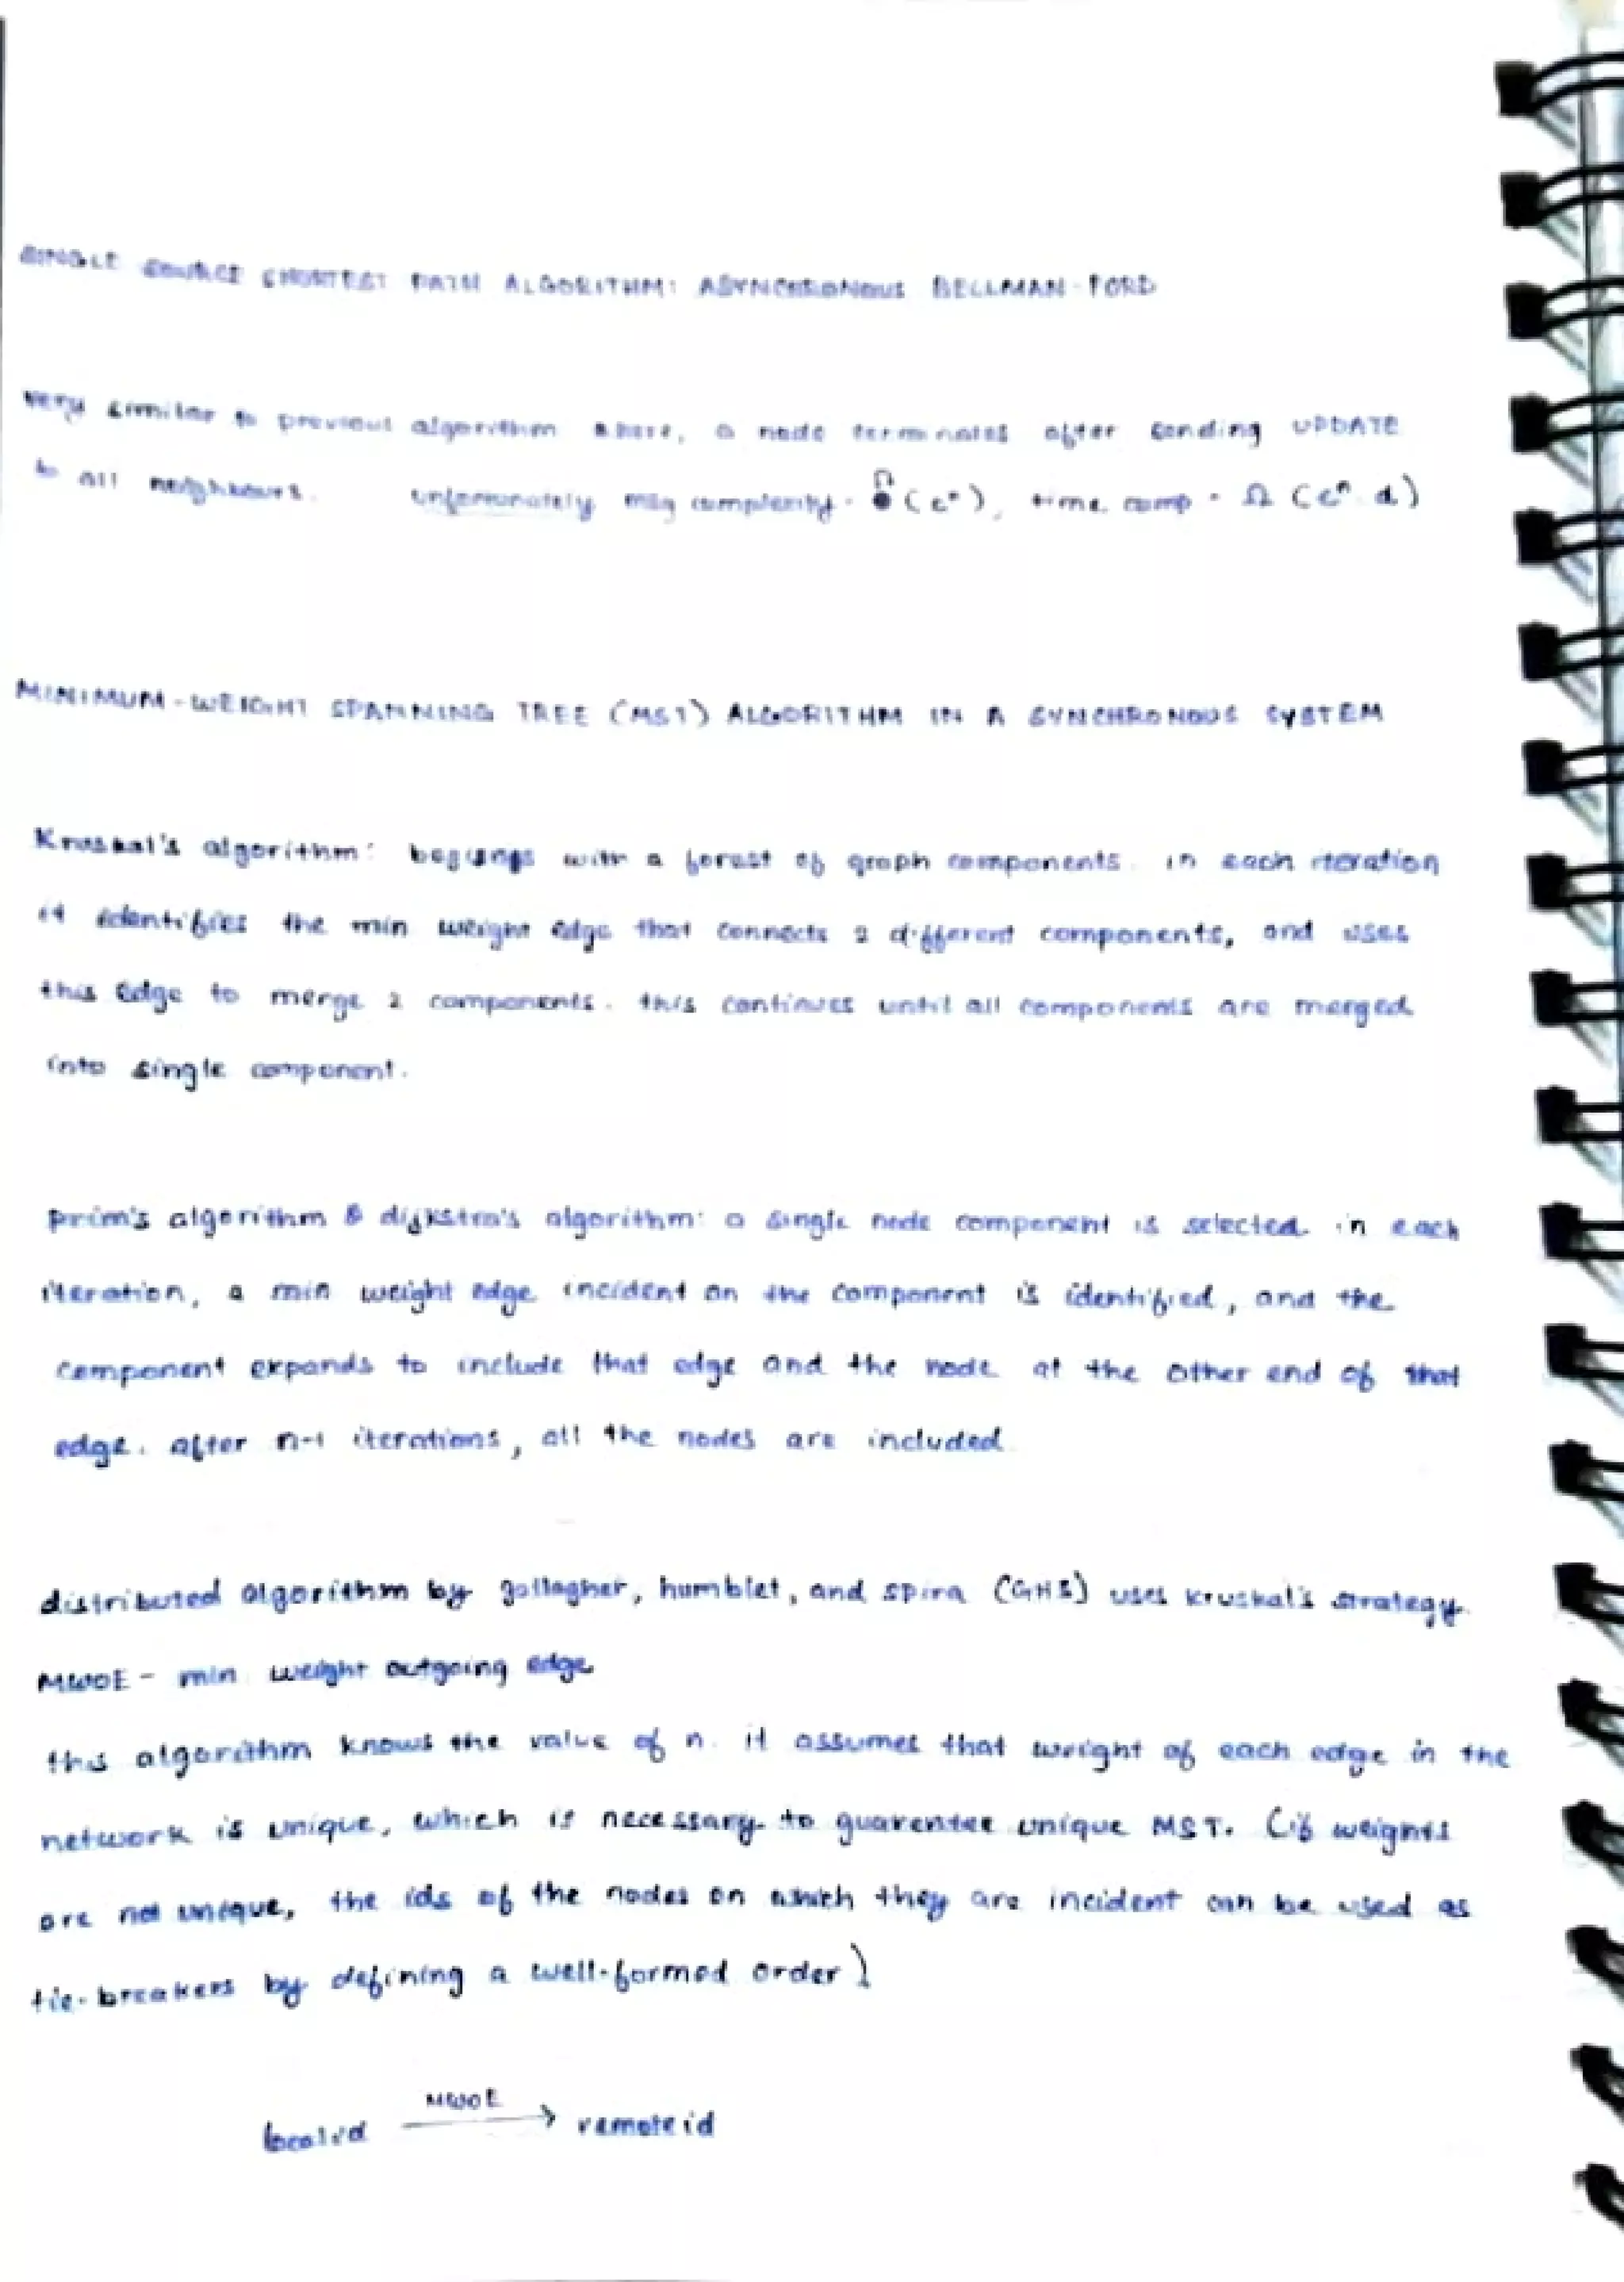 SINGLE SOURCE SHORTEST PATH ALGORITHM: ASYNCHRONOUS BELLMAN-FORD
very similar to previous algorithm above, a node terminates after sending UPDATE
to all neighbours. unfortunately msg complexity = Ω(cⁿ), time comp = Ω(cⁿ.d)
MINIMUM-WEIGHT SPANNING TREE (MST) ALGORITHM IN A SYNCHRONOUS SYSTEM
Kruskal's algorithm: begins with a forest of graph components. in each iteration
it identifies the min weight edge that connects 2 different components, and uses
this edge to merge 2 components. this continues until all components are merged
into single component.
prim's algorithm & dijkstra's algorithm: a single node component is selected. in each
iteration, a min weight edge incident on the component is identified, and the
component expands to include that edge and the node at the other end of that
edge. after n-1 iterations, all the nodes are included.
distributed algorithm by gallagher, humblet, and spira (GHS) uses kruskal's strategy.
MWOE - min weight outgoing edge
this algorithm knows the value of n. it assumes that weight of each edge in the
network is unique, which is necessary to guarentee unique MST. (if weights
are not unique, the ids of the nodes on which they are incident can be used as
tie-breakers by defining a well-formed order)
MWOE
localid → remoteid